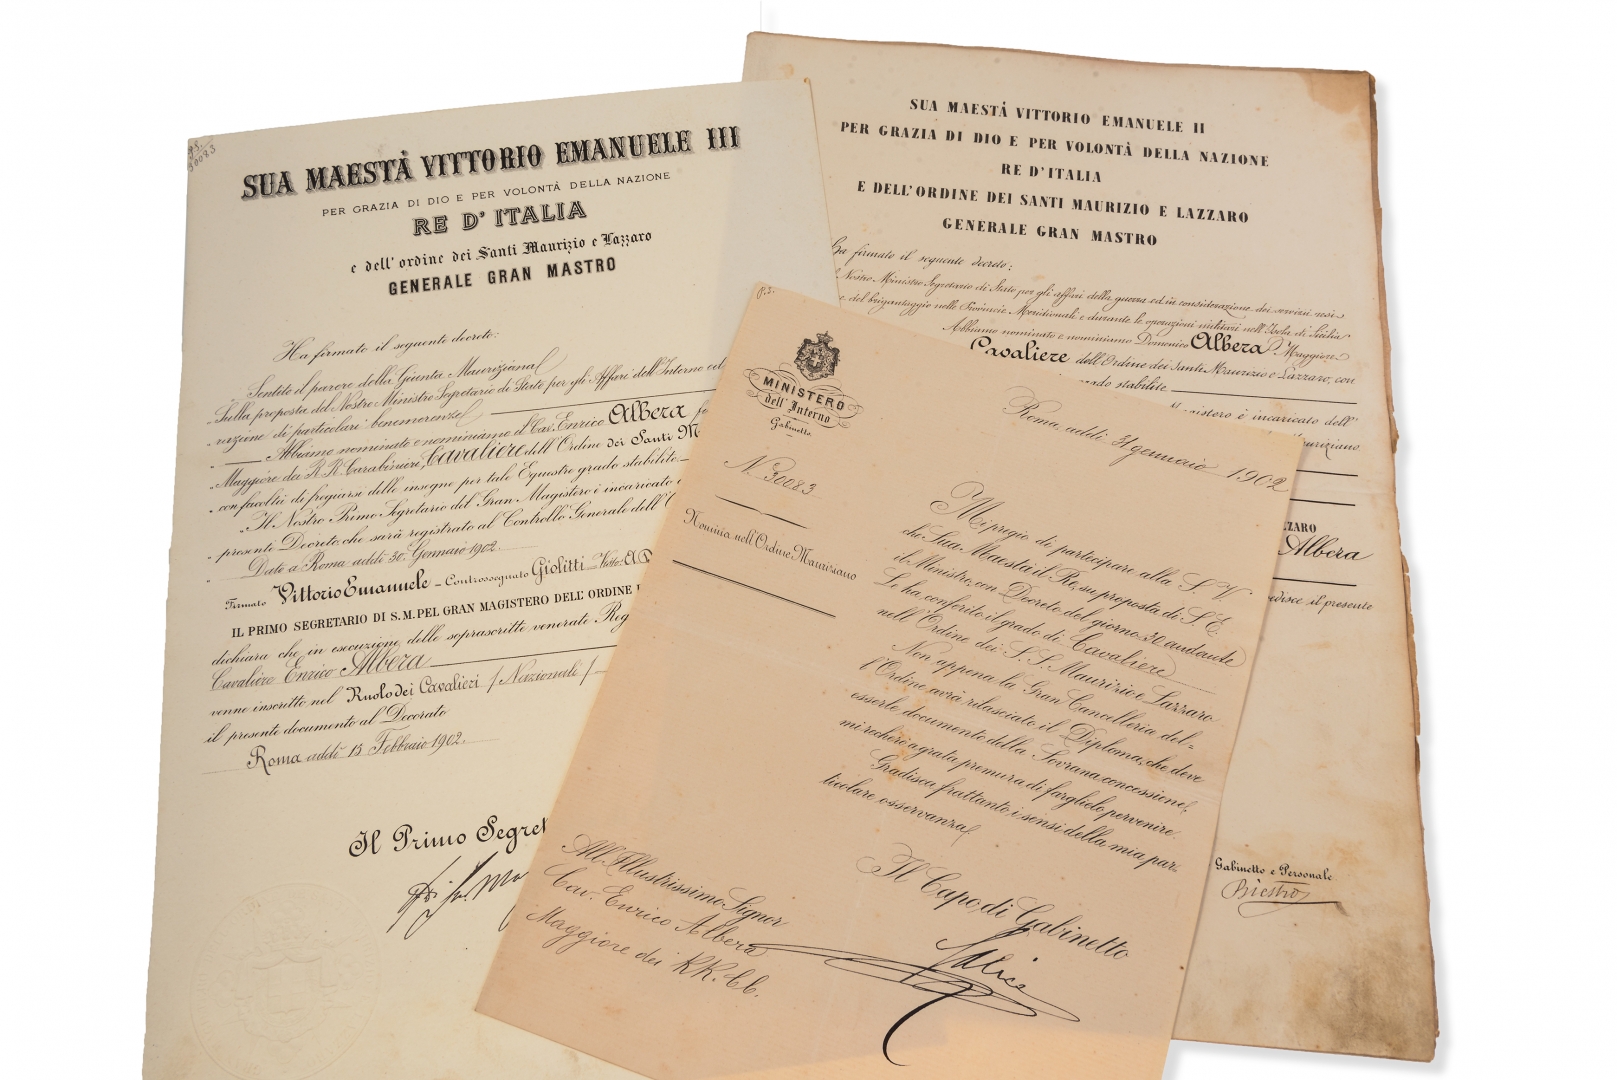 P.S.
30083
SUA MAESTÀ VITTORIO EMANUELE III
PER GRAZIA DI DIO E PER VOLONTÀ DELLA NAZIONE
RE D'ITALIA
e dell'ordine dei Santi Maurizio e Lazzaro
GENERALE GRAN MASTRO
Ha firmato il seguente decreto:
Sentito il parere della Giunta Mauriziana
Sulla proposta del Nostro Ministro Segretario di Stato per gli Affari dell'Interno ed
razione di particolari benemerenze
Abbiamo nominato e nominiamo il Cav. Enrico Albera
Maggiore dei R.R. Carabinieri, Cavaliere dell'Ordine dei Santi M
con facoltà di fregiarsi delle insegne per tale Equestre grado stabilite
Il Nostro Primo Segretario del Gran Magistero è incaricato
presente Decreto che sarà registrato al Controllo Generale dell'
Dato a Roma addì 30. Gennaio 1902.
Firmato Vittorio Emanuele - Controssegnato Giolitti - Visto: A.
IL PRIMO SEGRETARIO DI S.M. PEL GRAN MAGISTERO DELL'ORDINE
dichiara che in esecuzione delle soprascritte venerate Reg
Cavaliere Enrico Albera
venne inscritto nel Ruolo dei Cavalieri (Nazionali)
il presente documento al Decorato
Roma addì 13 Febbraio 1902.
Il Primo Segret
P.S.
MINISTERO
dell'Interno
Gabinetto
N. 30083
Nomina nell'Ordine Mauriziano
Roma, addì 31 gennaio 1902
Mi pregio di partecipare alla S. V.
che Sua Maestà il Re, su proposta di S. E.
il Ministro, con Decreto del giorno 30 andante
Le ha conferito il grado di Cavaliere
nell'Ordine dei S.S. Maurizio e Lazzaro
Non appena la Gran Cancelleria del-
l'Ordine avrà rilasciato il Diploma, che deve
esserle documento della Sovrana concessione,
mi recherò a grata premura di farglielo pervenire.
Gradisca frattanto i sensi della mia par-
ticolare osservanza
Il Capo di Gabinetto
All'Illustrissimo Signor
Cav. Enrico Albera
Maggiore dei RR. CC.
SUA MAESTÀ VITTORIO EMANUELE II
PER GRAZIA DI DIO E PER VOLONTÀ DELLA NAZIONE
RE D'ITALIA
E DELL'ORDINE DEI SANTI MAURIZIO E LAZZARO
GENERALE GRAN MASTRO
Ha firmato il seguente decreto:
Nostro Ministro Segretario di Stato per gli affari della guerra ed in considerazione dei servizi resi
del brigantaggio nelle Provincie Meridionali e durante le operazioni militari nell'Isola di Sicilia
Abbiamo nominato e nominiamo Domenico Albera Maggiore
Cavaliere dell'Ordine dei Santi Maurizio e Lazzaro, con
grado stabilite
Magistero è incaricato dell'
Mauriziano.
LAZZARO
Albera
spedisce il presente
Gabinetto e Personale